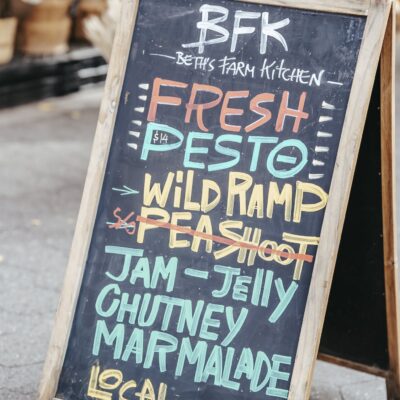 BFK
BETH'S FARM KITCHEN
FRESH
$14 PESTO
WILD RAMP
PEASHOOT
JAM - JELLY
CHUTNEY
MARMALADE
LOCAL